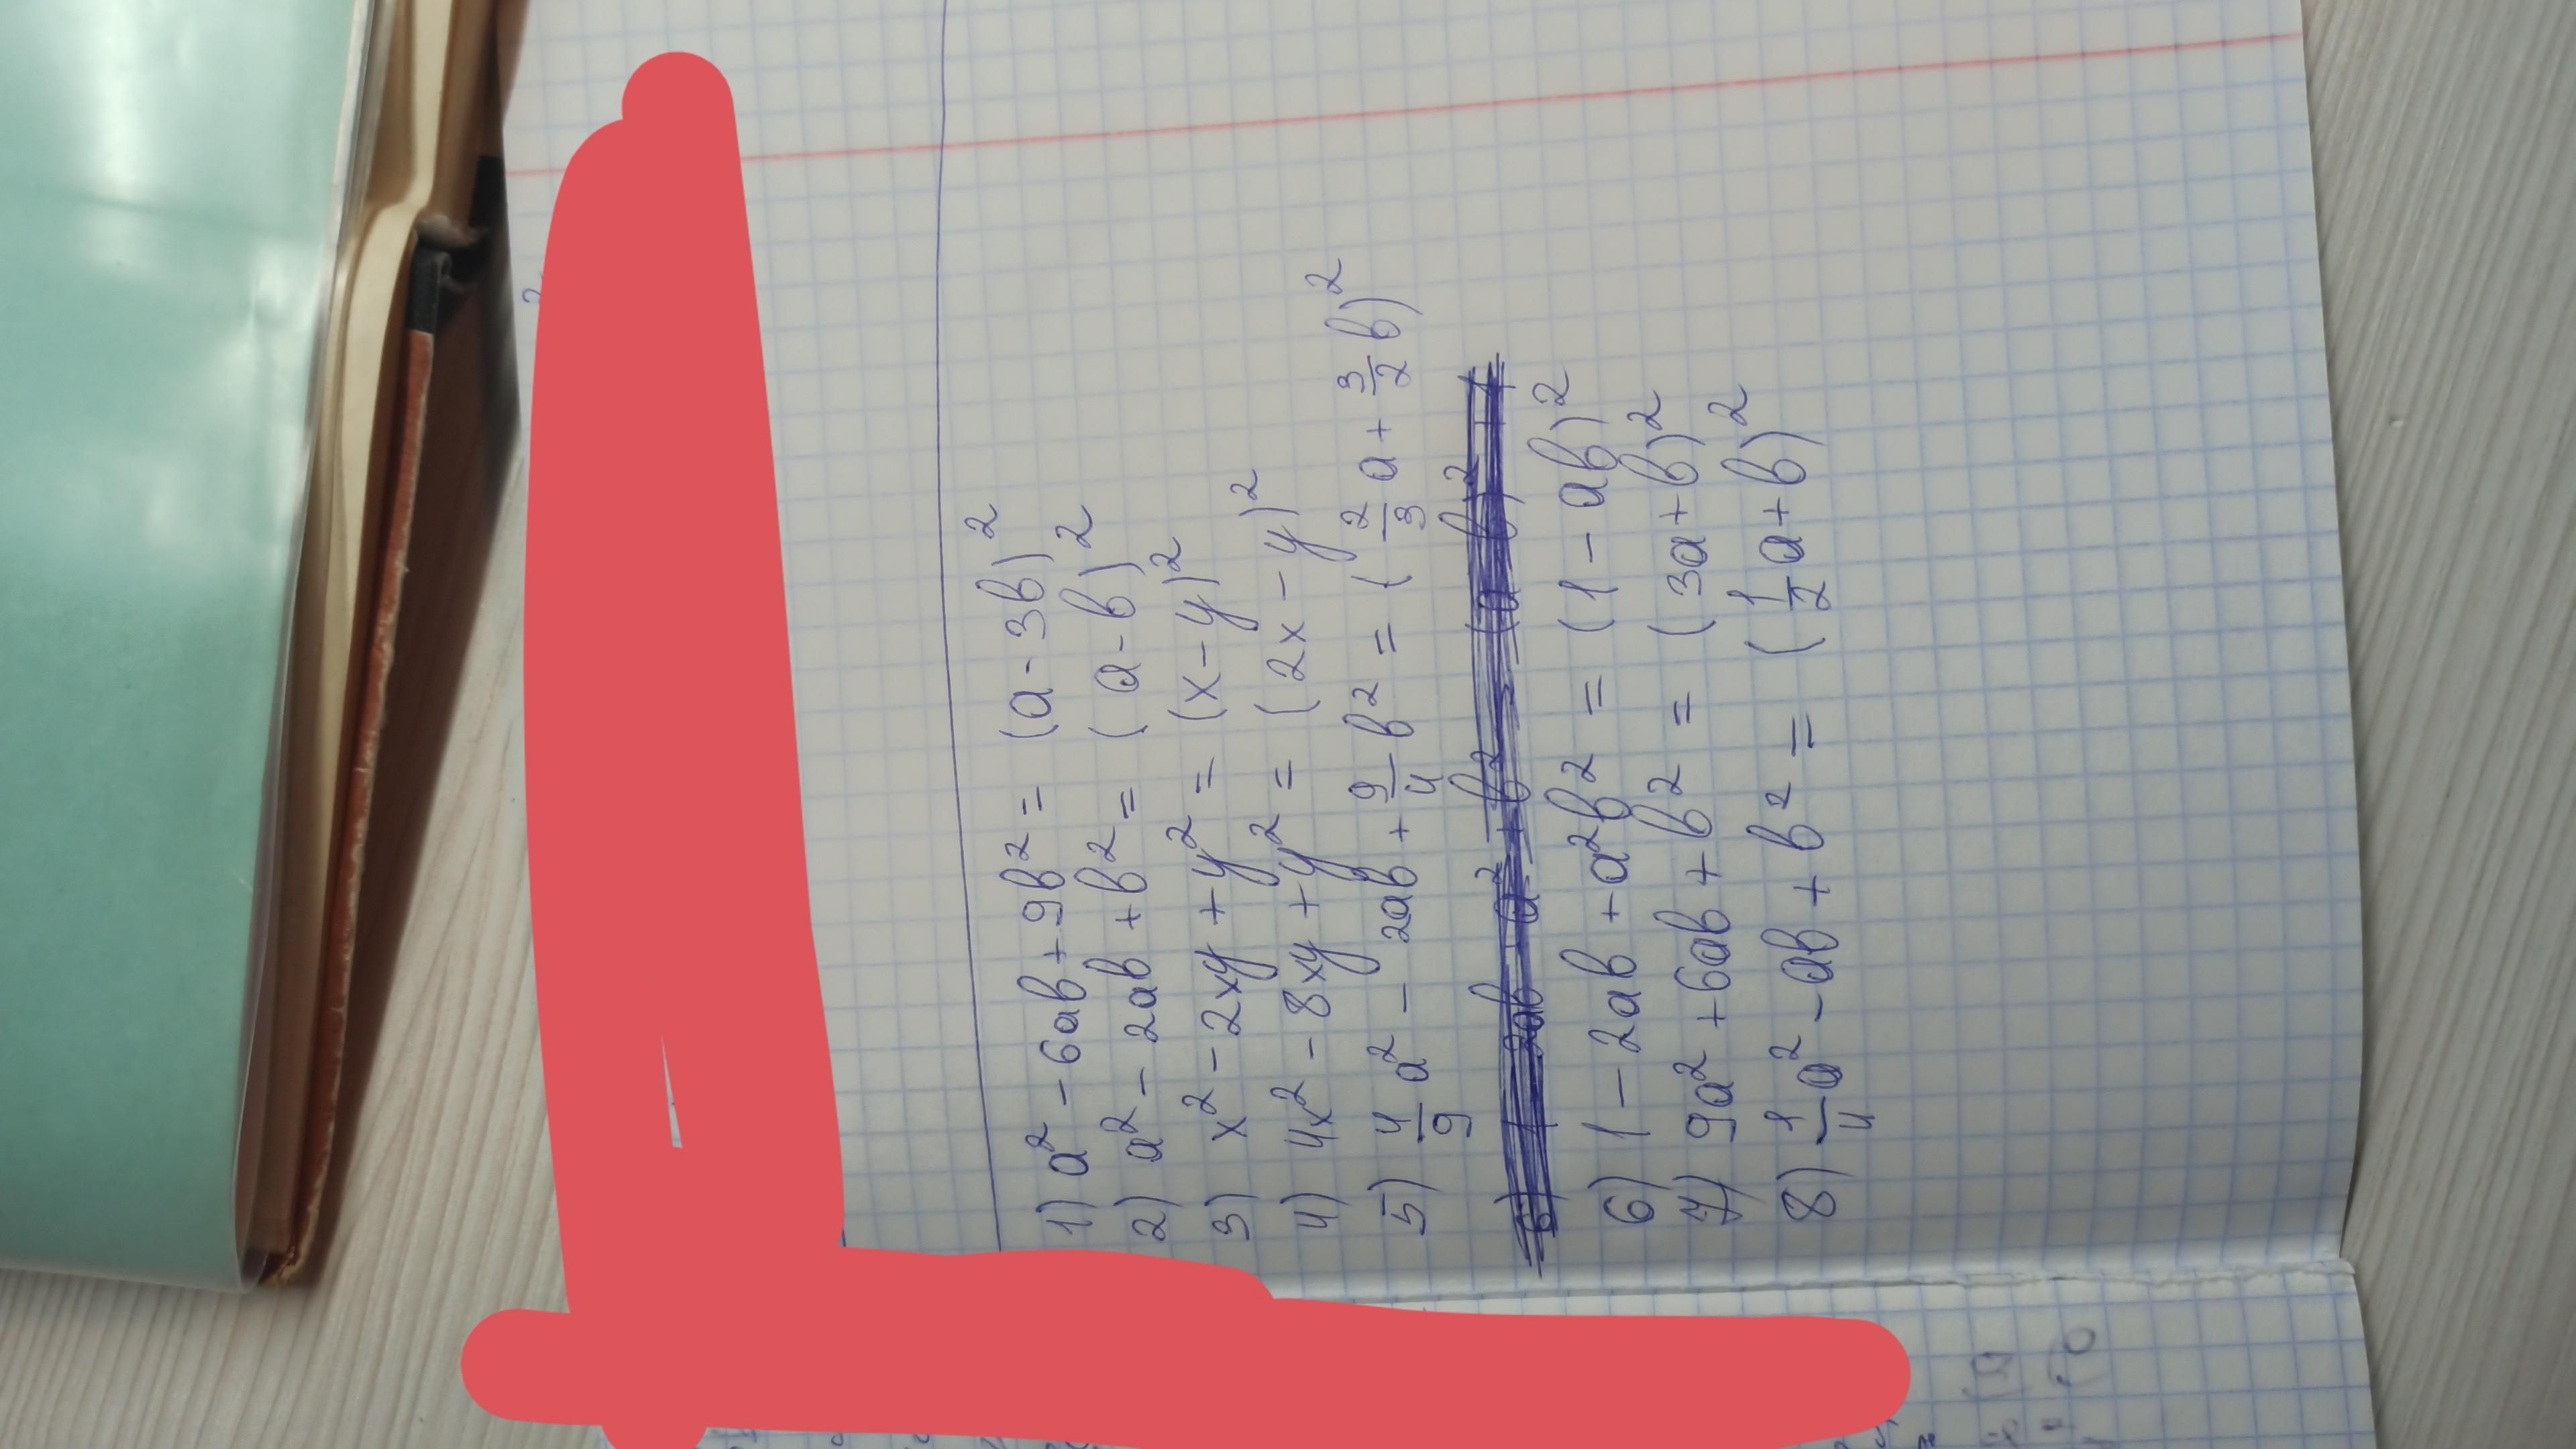 1) a² - 6ab + 9b² = (a - 3b)²
2) a² - 2ab + b² = (a - b)²
3) x² - 2xy + y² = (x - y)²
4) 4x² - 8xy + y² = (2x - y)²
5) 4/9 a² - 2ab + 9/4 b² = (2/3 a + 3/2 b)²
6) 1 - 2ab + a²b² = (1 - ab)²
7) 9a² + 6ab + b² = (3a + b)²
8) 1/4 a² - ab + b² = (1/2 a + b)²